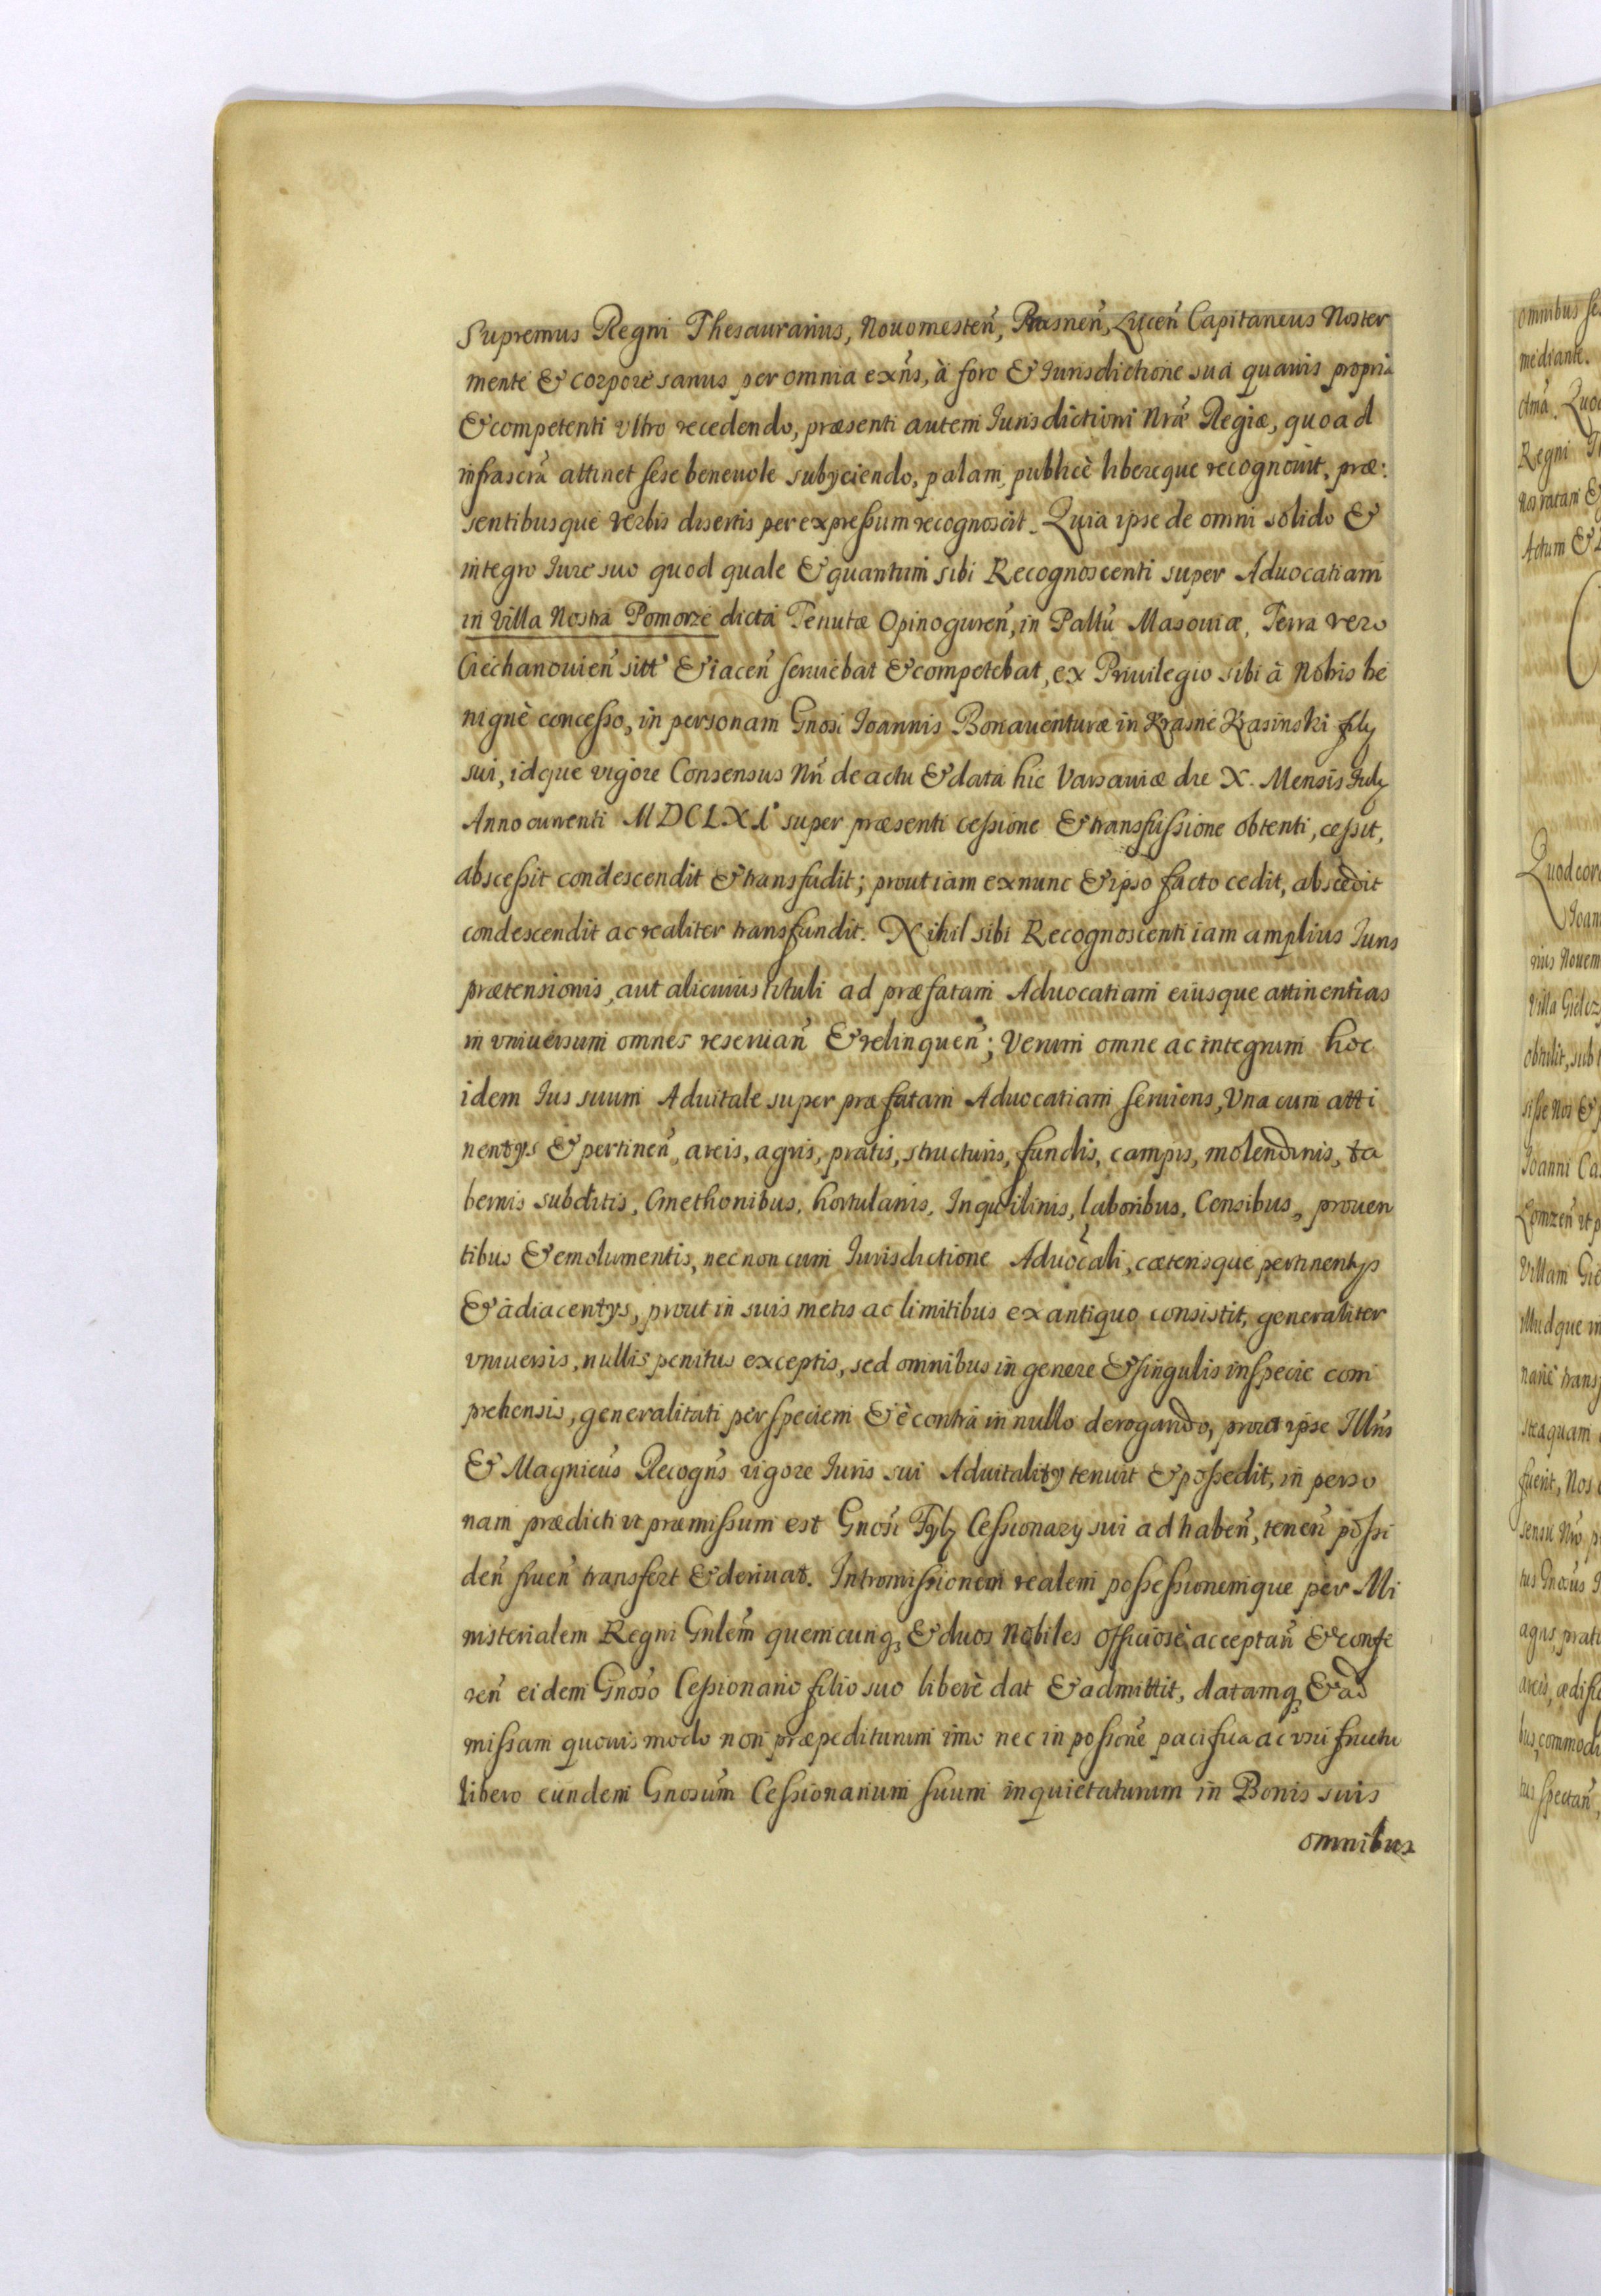 Supremus Regni Thesaurarius, Nouomesteñ, Prasneñ, Luceñ Capitaneus Noster
mente & corpore sanus per omnia exñs, à foro & Iurisdictione sua quauis propria
& competenti vltro recedendo, præsenti autem Iurisdictioni Nræ Regiæ, quoad
infrascra attinet sese beneuole subyciendo, palam, publicè libereque recognouit, præ:
sentibusque verbis disertis per expressum recognoscit. Quia ipse de omni solido &
integro Iure suo quod quale & quantum sibi Recognoscenti super Aduocatiam
in Villa Nostra Pomorze dicta Tenutæ Opinogureñ, in Paltu Masouiæ, Terra vero
Ciechanouieñ sitt & iaceñ seruiebat & competebat, ex Priuilegio sibi à Nobis be
nignè concesso, in personam Gnosi Ioannis Bonauenturæ in Krasne Krasinski fily
sui, idque vigore Consensus Nri de actu & data hic Varsauiæ die X. Mensis July
Anno currenti MDCLXI super præsenti cessione & transfussione obtenti, cessit,
abscessit condescendit & transfudit; prout iam exnunc & ipso facto cedit, abscedit
condescendit ac realiter transfundit. Nihil sibi Recognoscenti iam amplius Iuris
prætensionis, aut alicuius tituli ad præfatam Aduocatiam eiusque attinentias
in vniuersum omnes reseruañ & relinqueñ; Verum omne ac integrum hoc
idem Ius suum Aduitale super præfatam Aduocatiam seruiens, Vna cum atti
nentys & pertineñ, areis, agris, pratis, structuris, fundis, campis, molendinis, ta
bernis subditis, Cmethonibus, hortulanis, Inquilinis, laboribus, Censibus, prouen
tibus & emolumentis, nec non cum Iurisdictione Aduocali, cæterisque pertinentys
& adiacentys, prout in suis metis ac limitibus ex antiquo consistit, generaliter
vniuersis, nullis penitus exceptis, sed omnibus in genere & singulis in specie com
prehensis, generalitati per speciem & è contra in nullo derogando, prout ipse Illris
& Magnicus Recogns vigore Iuris sui Aduitalitty tenuit & possedit, in perso
nam prædicti vt præmissum est Gnosi Fyly Cessionary sui ad habeñ, teneñ possi
deñ frueñ transfert & deriuat. Intromissionem realem possessionemque per Mi
nisterialem Regni Gnlem quemcunq, & duos Nobiles officiosè acceptañ & confe
reñ eidem Gnoso Cessionario filio suo liberè dat & admittit, datamq, & ad
missam quouis modo non præpediturum imo nec in possione pacifica ac vsu fructu
libero eundem Gnosum Cessionarium suum inquietaturum in Bonis suis
omnibus